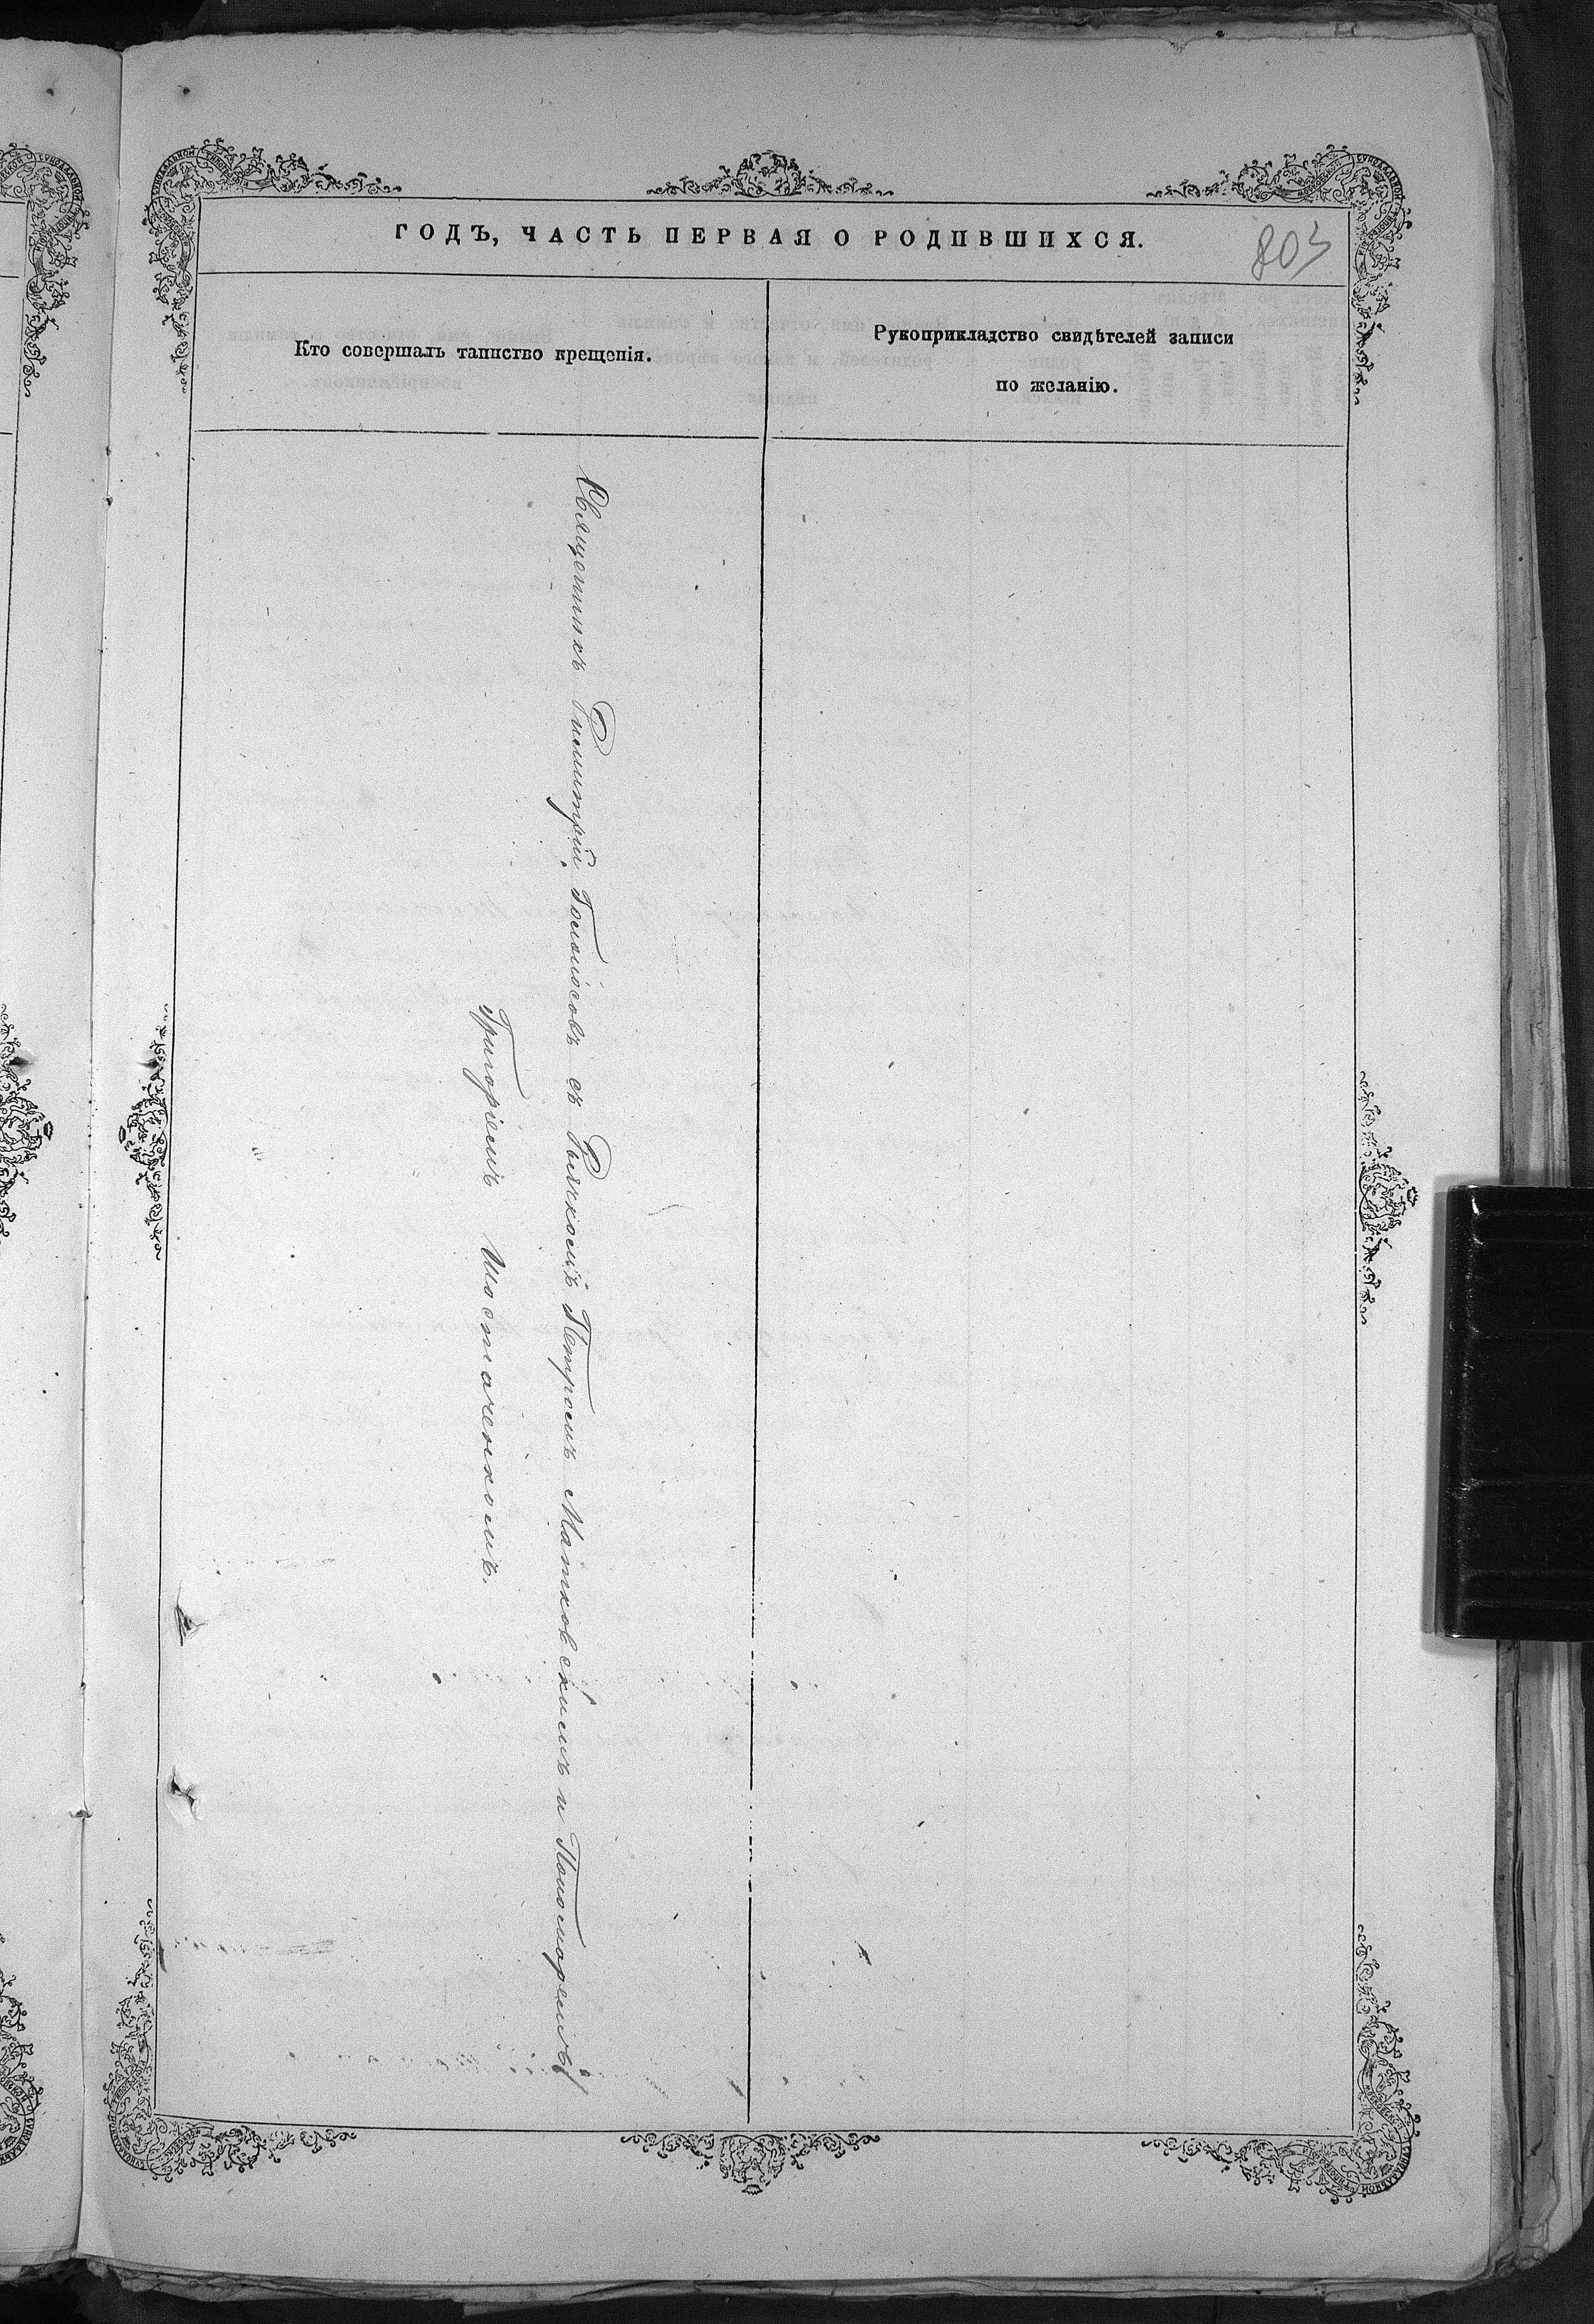 ГОДЪ, ЧАСТЬ ПЕРВАЯ О РОДИВШИХСЯ.
803
Кто совершалъ таинство крещенія.
Рукоприкладство свидѣтелей записи
по желанію.
Священникъ Димитрій съ Дьячкомъ Петромъ Матковскимъ и Пономаремъ
Григоріемъ Шостаченкомъ.